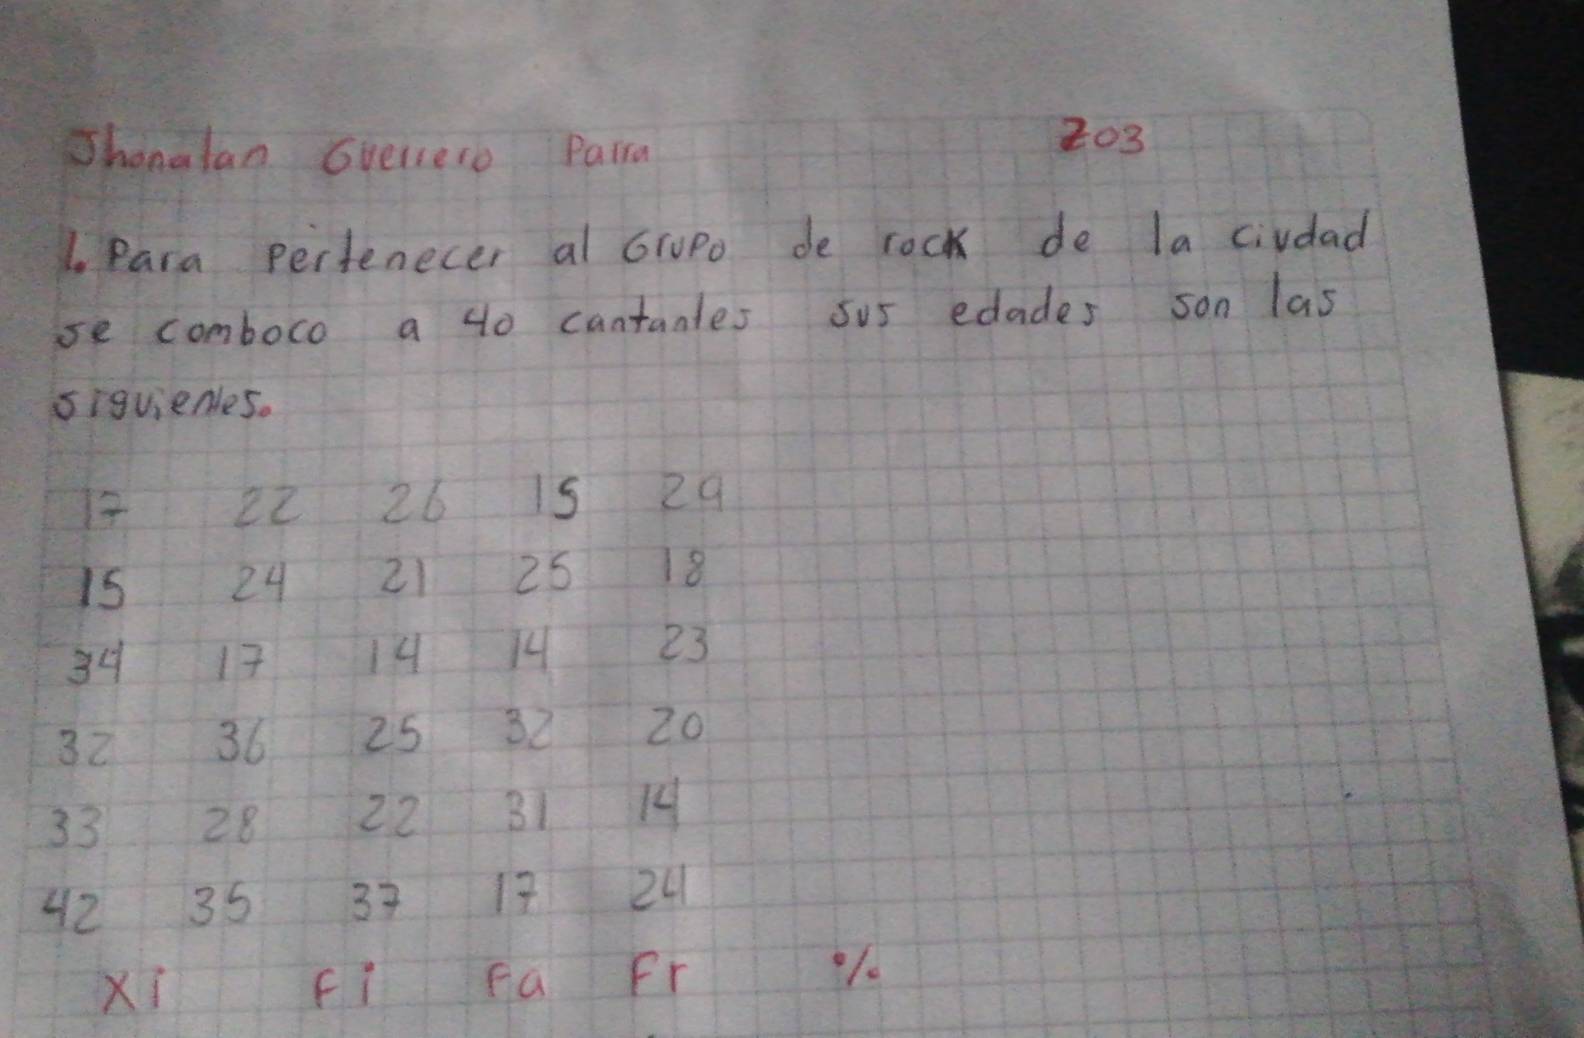 Jhonatan Guerrero Parra 203
1. Para pertenecer al Grupo de rock de la ciudad
se comboco a 40 cantantes sus edades son las
siguientes.
17 22 26 15 29
15 24 21 25 18
34 17 14 14 23
32 36 25 32 20
33 28 22 31 14
42 35 37 17 24
Xi Fi Fa Fr %